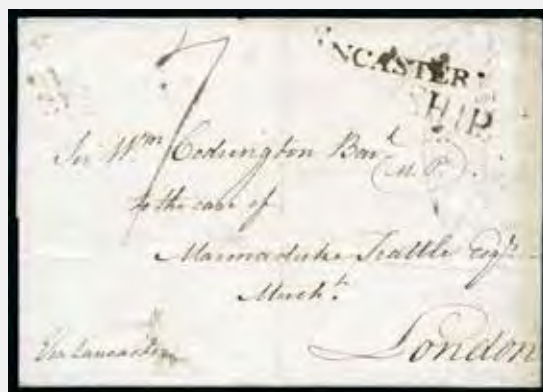 7
NCASTER
SHIP
Sir Wm Codrington Bart
M.P.
to the care of
Marmaduke Trattle Esqr
Mercht
London
Via Lancaster